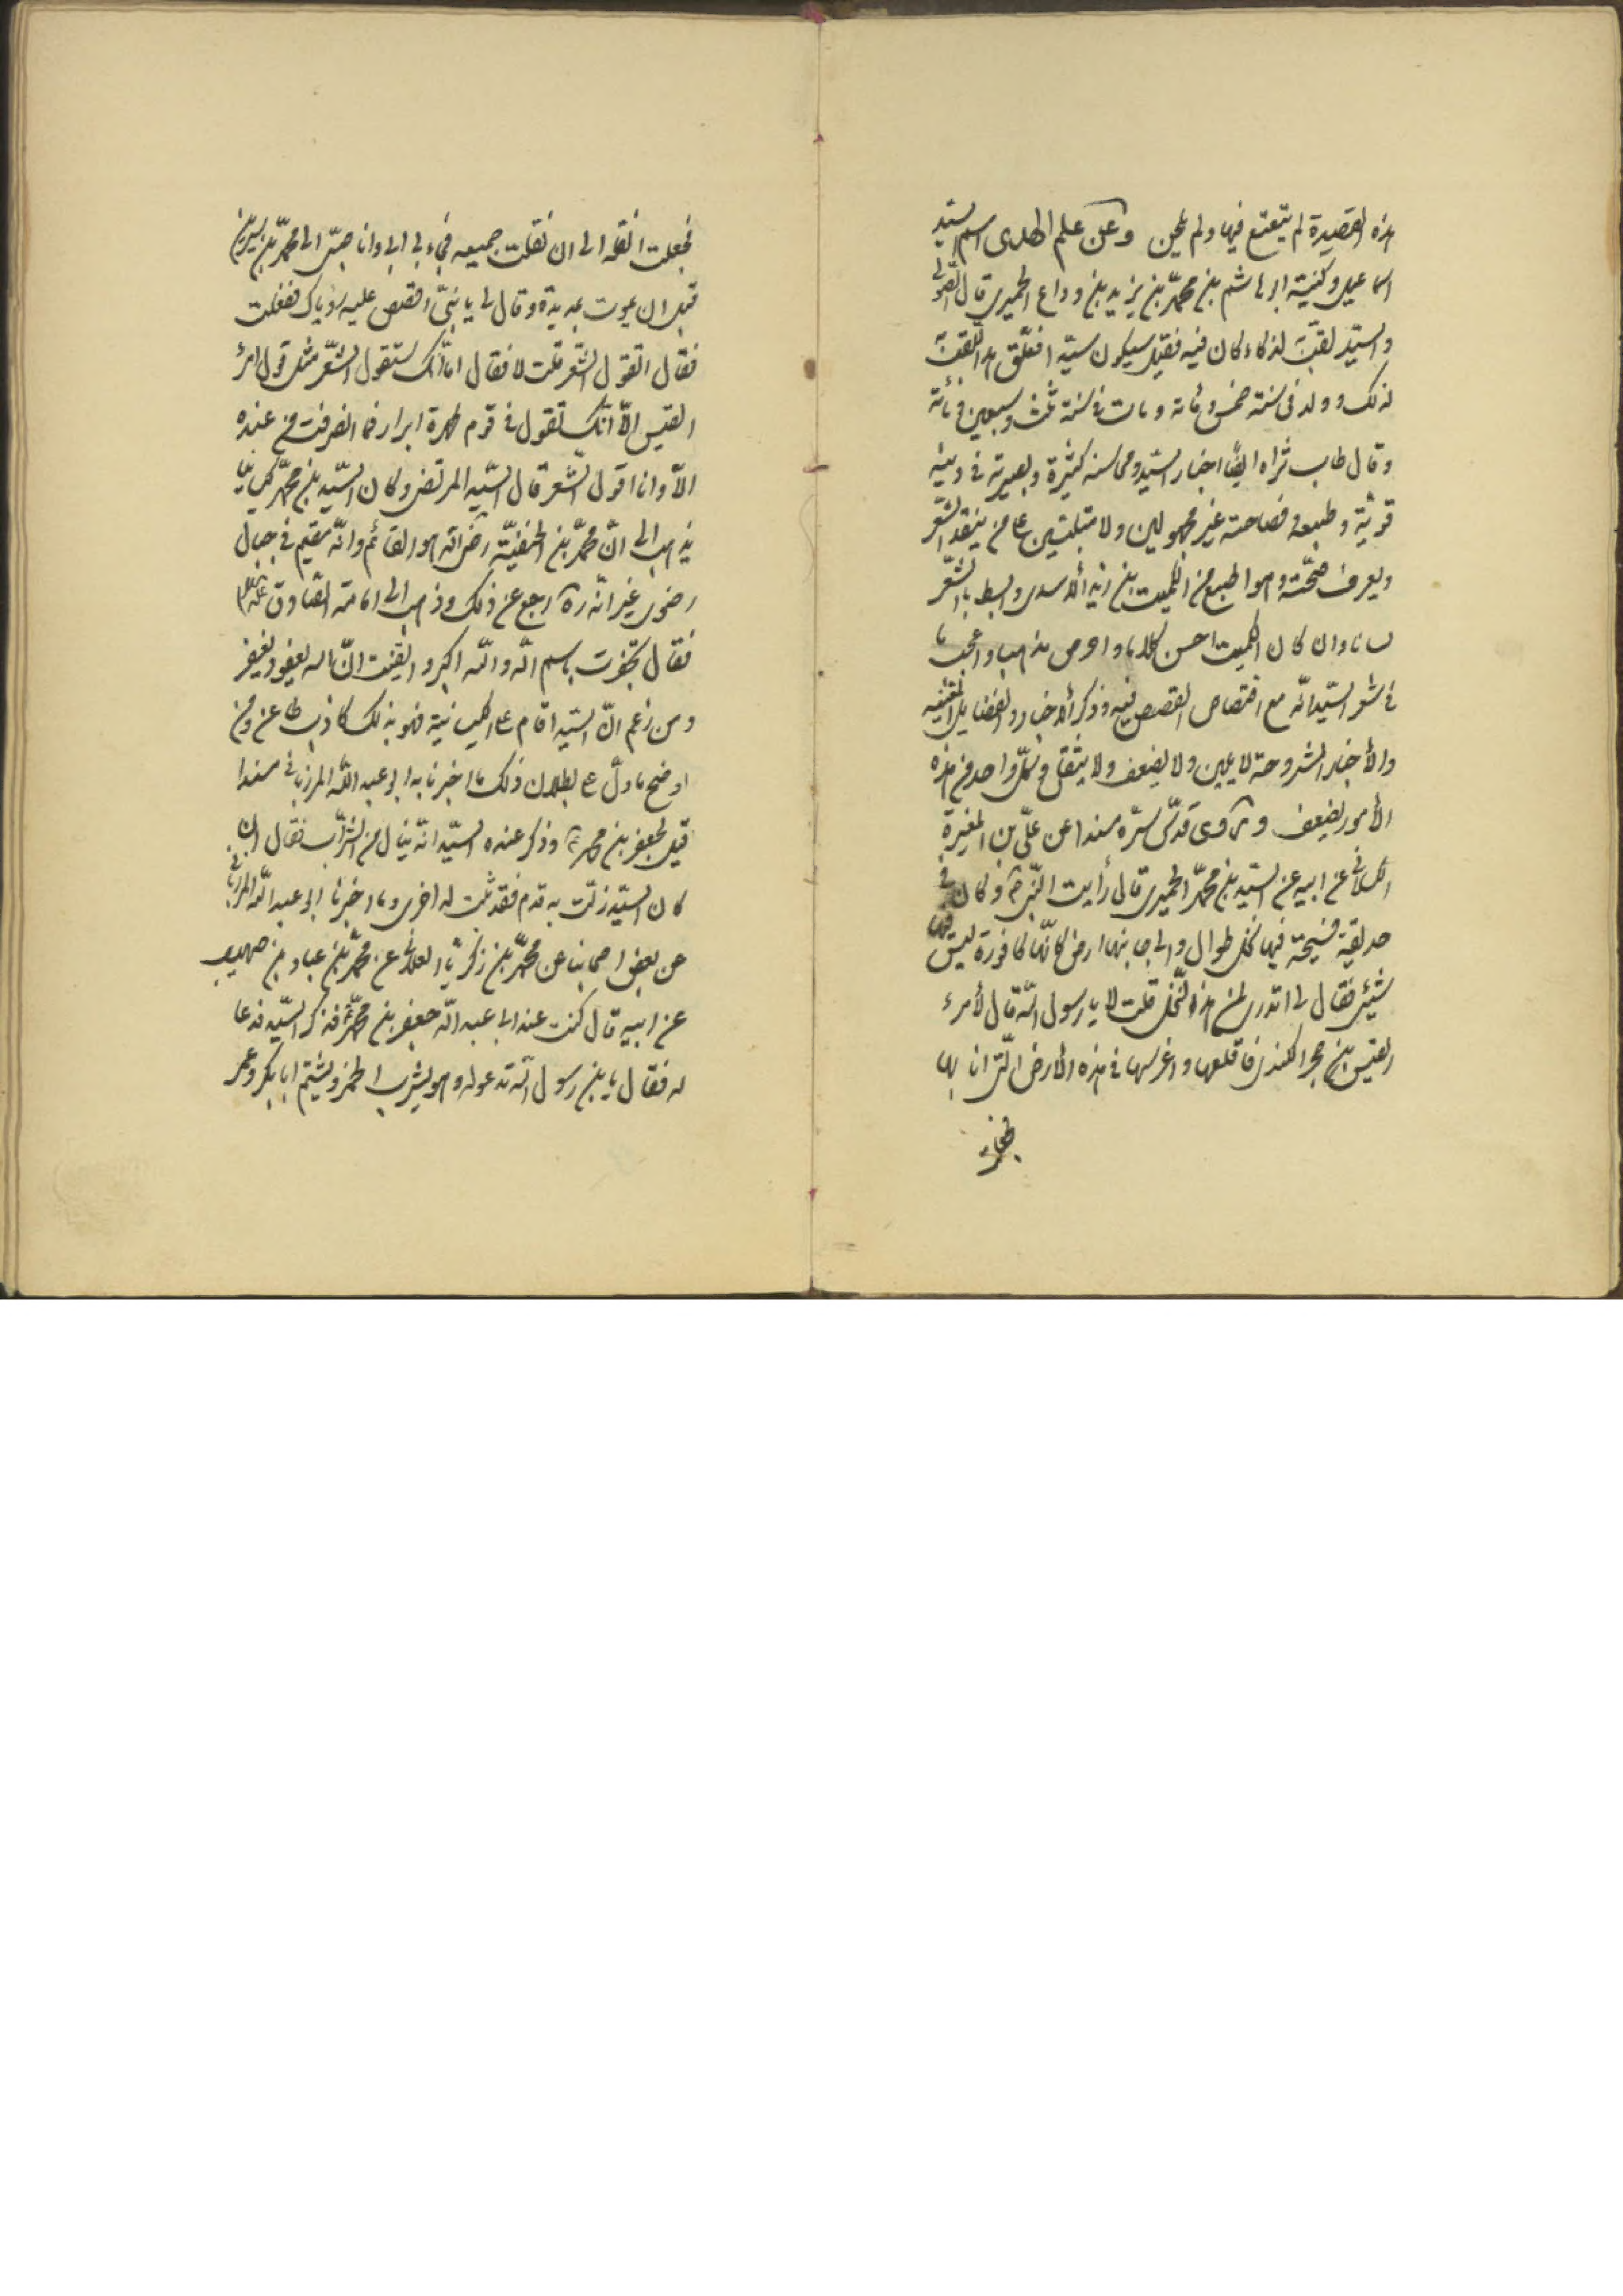 هذه القصيدة لم يتعتع فيها ولم يلحن وعن علم الهدى اسم السيد
اسماعيل وكنيته ابو هاشم بن محمّد بن يزيد بن وداع الحميرى قال الصّولى
والسيّد لقبّ لذكاء كان فيه فقيل سيكون سيّدا فعلّق هذا اللّقب
لذلك وولد فى سنة خمس ومائة ومات فى سنة ثلث وسبعين ومائة
وقال طاب ثراه ايضًا اخبار السيّد ومحاسنه كثيرة وبصيرته فى دينه
قويّة وطبعه وفصاحته غير مجهولين ولا متبلتين على من ينقد الشّعر
ويعرف صحّته وهو اطبع من الكميت بن زيد الأسدى وابسط بالشّعر
لسانا وان كان الكميت احسن كلاما واوصى مذهبا واعجب ما
فى شعر السيّد انّه مع اقتصاص القصص فيه وذكر الأخبار والفضايل
والأخبار المشروحة لا يمين ولا يضعف ولا يثقل وكلّ واحد من هذه
الأمور يضعف وروى قدّس سرّه مسندا عن علىّ بن المغيرة
عن ابيه عن السيّد بن محمّد الحميرى قال رأيت النّبى ص وكان فى
حديقة فسيحة فيها نخل طوال والى جانبها ارض كانّها كافورة ليس فيها
شيئ فقال لى اتدرى لمن هذه النّخل قلت لا يا رسول الله قال لأمرء
القيس بن حجر الكندى فاقلعها واغرسها فى هذه الأرض الّتى انا بها
فجعلت
فجعلت انقلها الى ان نقلت جميعه فجاء بى ابى وانا صبىّ الى محمّد بن سيرين
قبل ان يموت بمديدة وقال لى يا بنىّ اقصص عليه رؤياك ففعلت
فقال اتقول الشّعر قلت لا فقال اما انّك ستقول الشّعر مثل قول امرئ
القيس الّا انّك تقول فى قوم طهرة ابرار فما انصرفت من عنده
الّا وانا اقول الشّعر قال السيّد المرتضى وكان السيّد بن محمّد كيسانيّا
يذهب الى انّ محمّد بن الحنفيّة رضى الله هو القائم وانّه مقيم فى جبال
رضوى غير انّه ره رجع عن ذلك وذهب الى امامة الصّادق عليه السّلام
فقال تجعفرت باسم الله والله اكبر وايقنت انّ الله يعفو ويغفر
ومن زعم انّ السيّد اقام على الكيسانية فهو بذلك كاذب طاعن ومن
اوضح ما دلّ على بطلان ذلك ما اخبرنا به ابو عبد الله المرزبانى مسندا
قيل لجعفر بن محمد ع وذكر عنده السيّد انّه ينال من الشّراب فقال ان
كان السيّد زلّت به قدم فقد ثبت له اخرى وما اخبرنا ابو عبد الله المرزبانى
عن بعض اصحابنا عن محمّد بن زكريّا العلائى عن محمّد بن عباد بن صهيب
عن ابيه قال كنت عند ابى عبد الله جعفر بن محمّد ع فذكر السيّد فدعا
له فقال يا بن رسول الله تدعو له وهو يشرب الخمر ويشتم ابا بكر وعمر